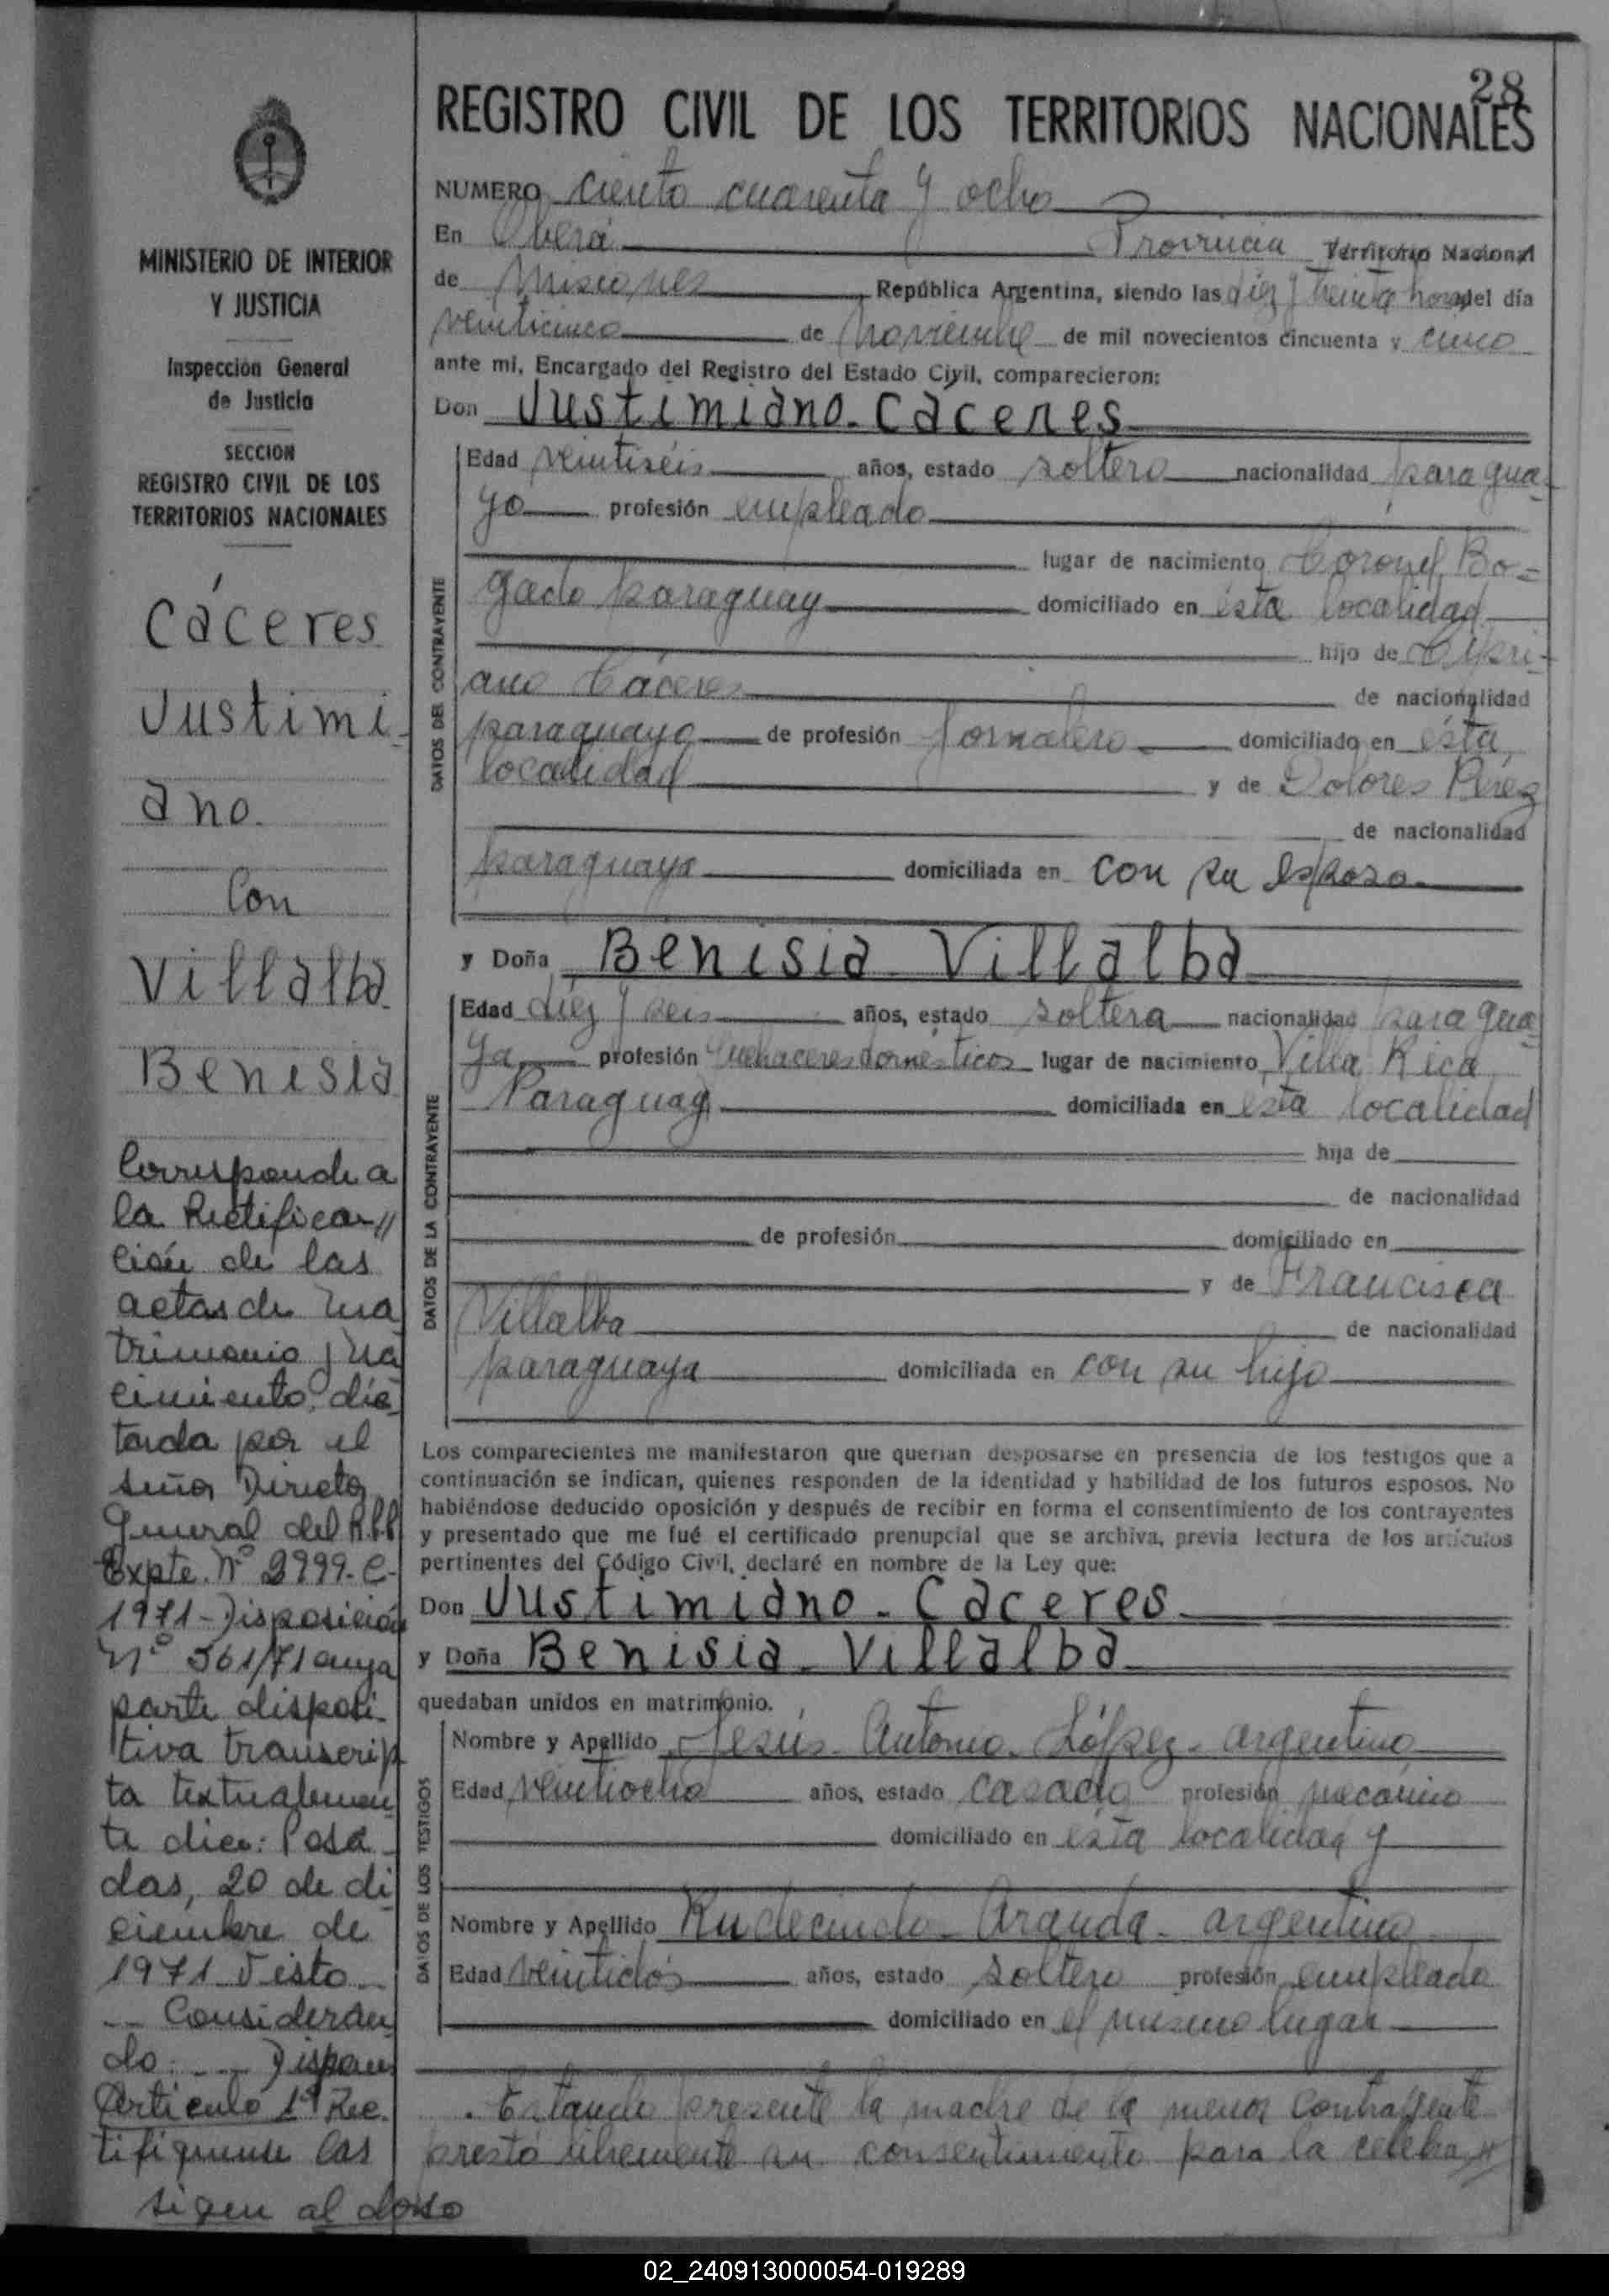 28
REGISTRO CIVIL DE LOS TERRITORIOS NACIONALES
NUMERO ciento cuarenta y ocho
En Oberá Provincia Territorio Nacional
de Misiones, República Argentina, siendo las diez y treinta horas del día
veinticinco de noviembre de mil novecientos cincuenta y cinco
ante mi, Encargado del Registro del Estado Civil, comparecieron:
Don Justimiano - Cáceres
Edad veintiséis años, estado soltero nacionalidad paragua-
yo profesión empleado
lugar de nacimiento Coronel Bo-
gado paraguay domiciliado en ésta localidad
hijo de Cipri-
ano Cáceres de nacionalidad
paraguayo de profesión jornalero domiciliado en ésta
localidad y de Dolores Pérez
de nacionalidad
paraguaya domiciliada en con su esposo
y Doña Benisia Villalba
Edad diéz y seis años, estado soltera nacionalidad paragua-
ya profesión quehaceres domésticos lugar de nacimiento Villa Rica
Paraguay domiciliada en esta localidad
hija de
de nacionalidad
de profesión domiciliado en
y de Francisca
Villalba de nacionalidad
paraguaya domiciliada en con su hijo
DATOS DEL CONTRAYENTE
DATOS DE LA CONTRAYENTE
Los comparecientes me manifestaron que querian desposarse en presencia de los testigos que a
continuación se indican, quienes responden de la identidad y habilidad de los futuros esposos. No
habiéndose deducido oposición y después de recibir en forma el consentimiento de los contrayentes
y presentado que me fué el certificado prenupcial que se archiva, previa lectura de los artículos
pertinentes del Código Civil, declaré en nombre de la Ley que:
Don Justimiano - Caceres
y Doña Benisia - Villalba
quedaban unidos en matrimonio.
Nombre y Apellido Jesús - Antonio - López - argentino
Edad veintiocho años, estado casado profesión mecánico
domiciliado en esta localidad y
Nombre y Apellido Rudecindo - Aranda - argentino
Edad veintidós años, estado soltero profesión empleado
domiciliado en el mismo lugar
DATOS DE LOS TESTIGOS
. Estando presente la madre de la menor contrayente
prestó libremente su consentimiento para la celebra //
MINISTERIO DE INTERIOR
Y JUSTICIA
Inspección General
de Justicia
SECCION
REGISTRO CIVIL DE LOS
TERRITORIOS NACIONALES
Cáceres
Justimi-
ano
Con
Villalba
Benisia
Corresponde a
la Rectifica//
ción de las
actas de ma
trimonio y na
cimiento, dic
tada por el
señor Director
General del R.P.P
Expte. Nº 2999-C-
1971-Disposición
Nº 361/71 cuya
parte disposi-
tiva transcrip
ta textualmen
te dice: Posa-
das, 20 de di
ciembre de
1971 Visto
-- Consideran
do: -- Dispone
Artículo 1º Rec-
tifiquense las
sigue al dorso
02_240913000054-019289